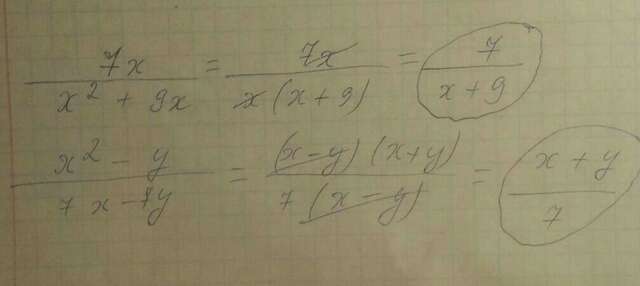 7x / x² + 9x = 7x / x(x+9) = 7 / x+9
x² - y / 7x-7y = (x-y)(x+y) / 7(x-y) = x+y / 7